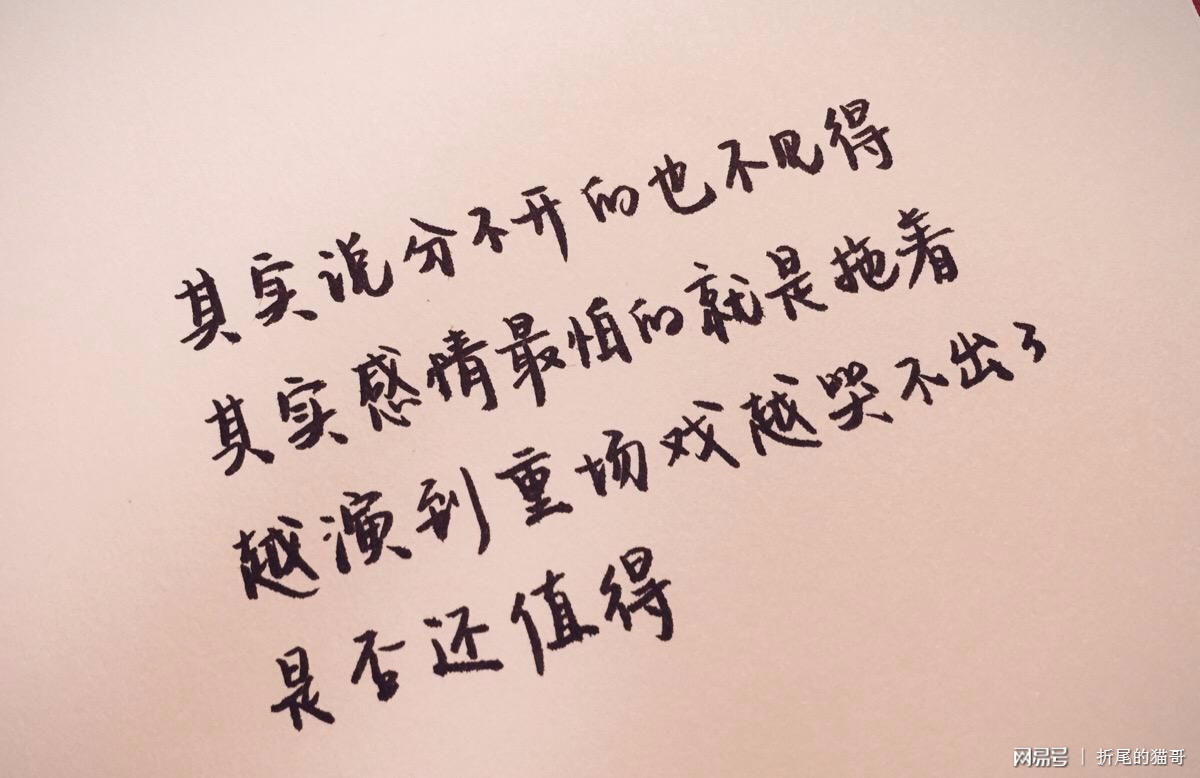 其实说分不开的也不见得
其实感情最怕的就是拖着
越演到重场戏越哭不出了
是否还值得
网易号 | 折尾的猫哥